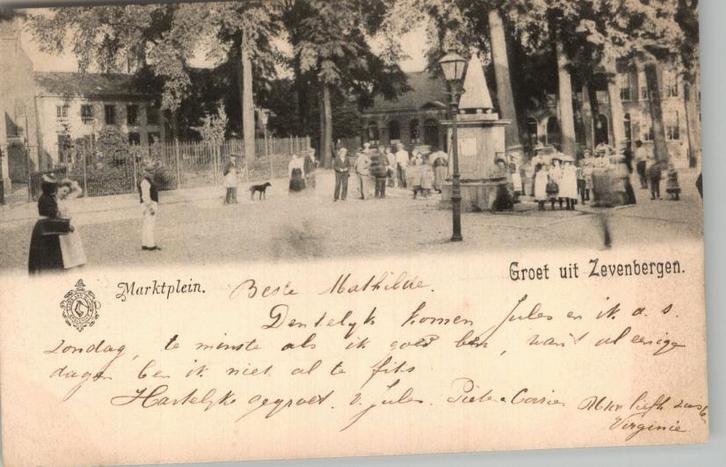 Groet uit Zevenbergen.
Marktplein.
Beste Mathilde.
Denkelyk komen Jules en ik a. s.
zondag, te minste als ik goed ben, want al eenige
dagen ben ik niet al te fits
Hartelyke gegroet. v. Jules. Piet en Carrie liefh zus
Virginie